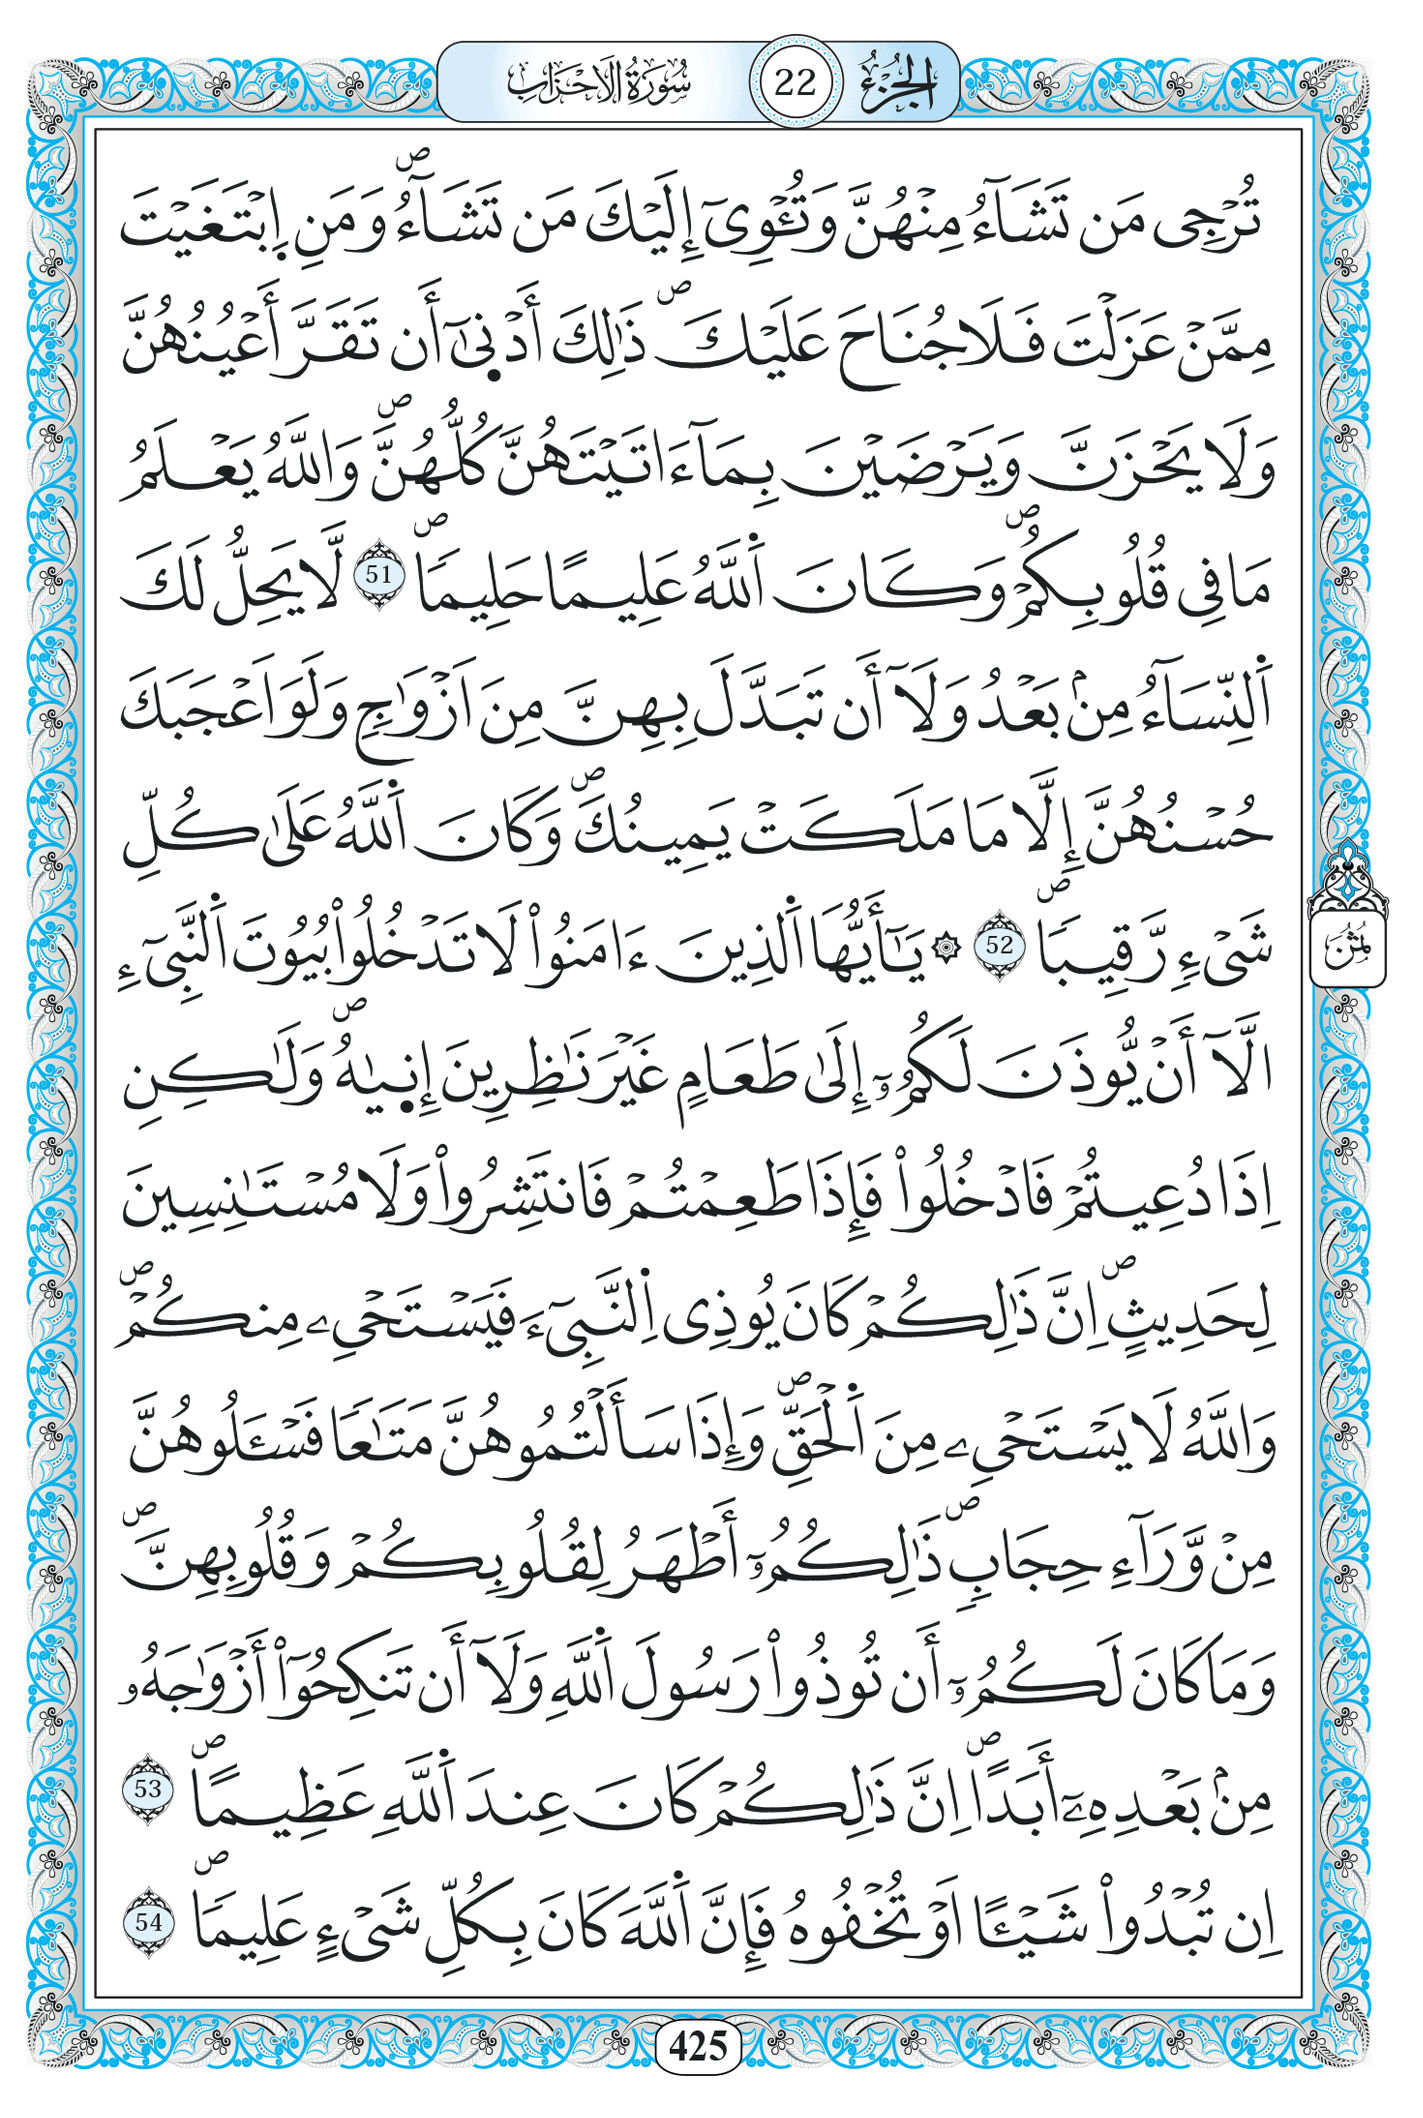 سُورَةُ الَاحْزَابِ 22 الجُزْءُ
تُرْجِى مَن تَشَآءُ مِنْهُنَّ وَتُـْٔوِىٓ إِلَيْكَ مَن تَشَآءُۖ وَمَنِ اِ۪بْتَغَيْتَ
مِمَّنْ عَزَلْتَ فَلَا جُنَاحَ عَلَيْكَۖ ذَٰلِكَ أَدْن۪ىٰٓ أَن تَقَرَّ أَعْيُنُهُنَّ
وَلَا يَحْزَنَّ وَيَرْضَيْنَ بِمَآ ءَاتَيْتَهُنَّ كُلُّهُنَّۖ وَاللَّهُ يَعْلَمُ
مَا فِى قُلُوبِكُمْۖ وَكَانَ اَ۬للَّهُ عَلِيمًا حَلِيمًاۖ 51 لَّا يَحِلُّ لَكَ
اَ۬لنِّسَآءُ مِنۢ بَعْدُ وَلَآ أَن تَبَدَّلَ بِهِنَّ مِنَ اَزْوَٰجٍ وَلَوَ اَعْجَبَكَ
حُسْنُهُنَّ إِلَّا مَا مَلَكَتْ يَمِينُكَۖ وَكَانَ اَ۬للَّهُ عَلَىٰ كُلِّ
شَىْءٍ رَّقِيبًاۖ 52 ۞ يَٰٓأَيُّهَا اَ۬لذِينَ ءَامَنُواْ لَا تَدْخُلُواْ بُيُوتَ اَ۬لنَّبِىٓءِ
الَّآ أَنْ يُّوذَنَ لَكُمُۥٓ إِلَىٰ طَعَامٍ غَيْرَ نَٰظِرِينَ إِن۪يٰهُۖ وَلَٰكِنِ
اِذَا دُعِيتُمْ فَادْخُلُواْ فَإِذَا طَعِمْتُمْ فَانتَشِرُواْ وَلَا مُسْتَـٰنِسِينَ
لِحَدِيثٍۖ اِنَّ ذَٰلِكُمْ كَانَ يُوذِى اِ۬لنَّبِىٓءَ فَيَسْتَحْىِۦ مِنكُمْۖ
وَاللَّهُ لَا يَسْتَحْىِۦ مِنَ اَ۬لْحَقِّۖ وَإِذَا سَأَلْتُمُوهُنَّ مَتَٰعًا فَسْـَٔلُوهُنَّ
مِنْ وَّرَآءِ حِجَابٍۖ ذَٰلِكُمُۥٓ أَطْهَرُ لِقُلُوبِكُمْ وَقُلُوبِهِنَّۖ
وَمَا كَانَ لَكُمُۥٓ أَن تُوذُواْ رَسُولَ اَ۬للَّهِ وَلَآ أَن تَنكِحُوٓاْ أَزْوَٰجَهُۥ
مِنۢ بَعْدِهِۦٓ أَبَدًاۖ اِنَّ ذَٰلِكُمْ كَانَ عِندَ اَ۬للَّهِ عَظِيمًاۖ 53
اِن تُبْدُواْ شَيْـًٔا اَوْ تُخْفُوهُ فَإِنَّ اَ۬للَّهَ كَانَ بِكُلِّ شَىْءٍ عَلِيمًاۖ 54
ثُمُنُ
425